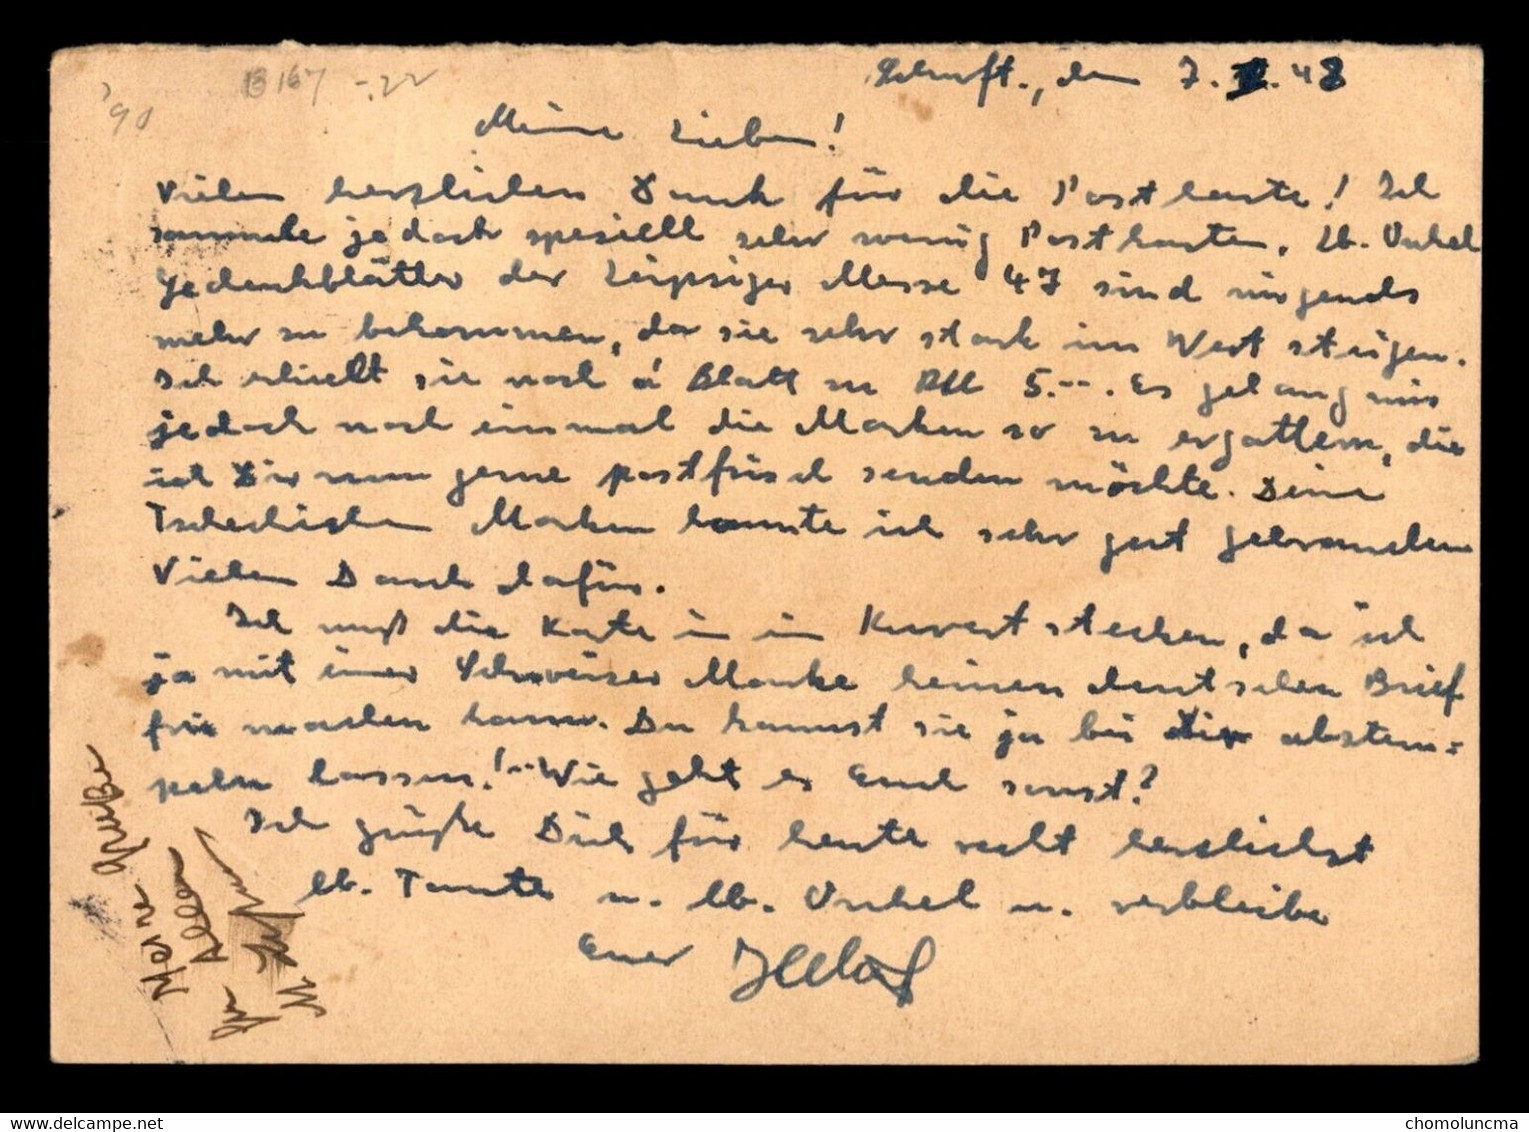 B 167 -.22
'90
den 7. 48
Meine Lieben!
Vielen herzlichen Dank für die Postkarte! Ich
sammele jedoch speziell sehr wenig Postkarten. Lb. Onkel
Gedenkblätter der Leipziger Messe 47 sind nirgends
mehr zu bekommen, da sie sehr stark im Wert steigen.
Ich erhielt sie noch á Blatt zu RM 5.--. Es gelang mir
jedoch noch einmal die Marken so zu ergattern, die
ich Dir nun gerne postfrisch senden möchte. Deine
Tschechischen Marken konnte ich sehr gut gebrauchen
Vielen Dank dafür.
Ich muß die Karte in im Kuvert stecken, da ich
ja mit einer Schweizer Marke keinen deutschen Brief
frei machen kann. Du kannst sie ja bei Dir abstem=
peln lassen! -- Wie geht es Euch sonst?
Ich grüße Dich für heute recht herzlichst
lb. Tante u. lb. Onkel u. verbleibe
Euer
Meine Grüße
Allen